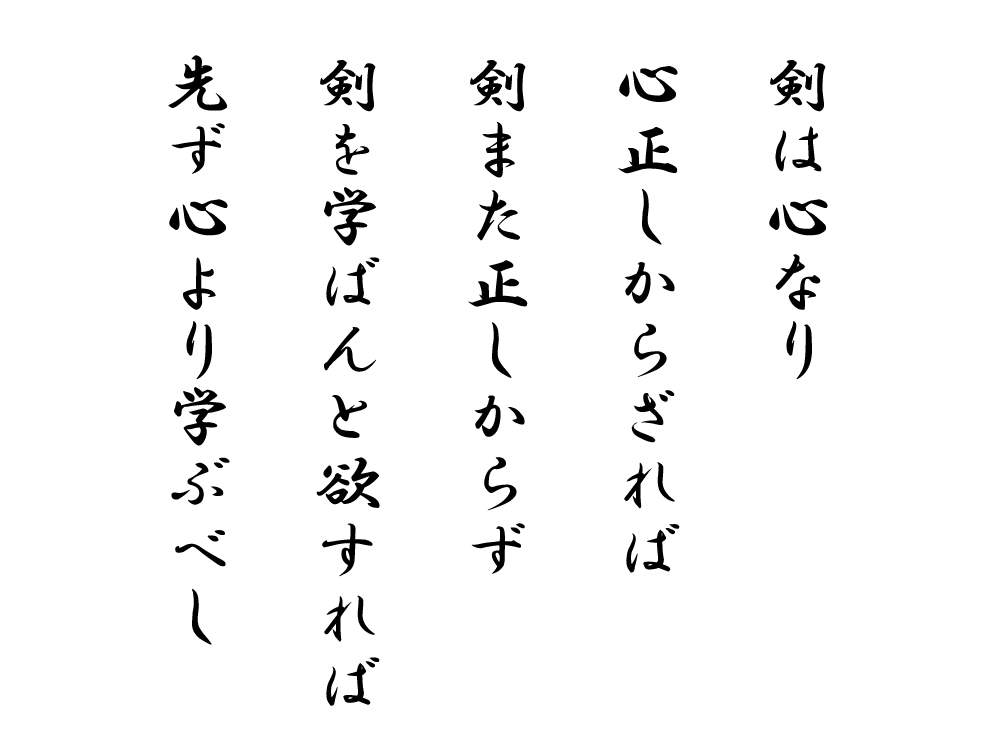 剣は心なり
心正しからざれば
剣また正しからず
剣を学ばんと欲すれば
先ず心より学ぶべし